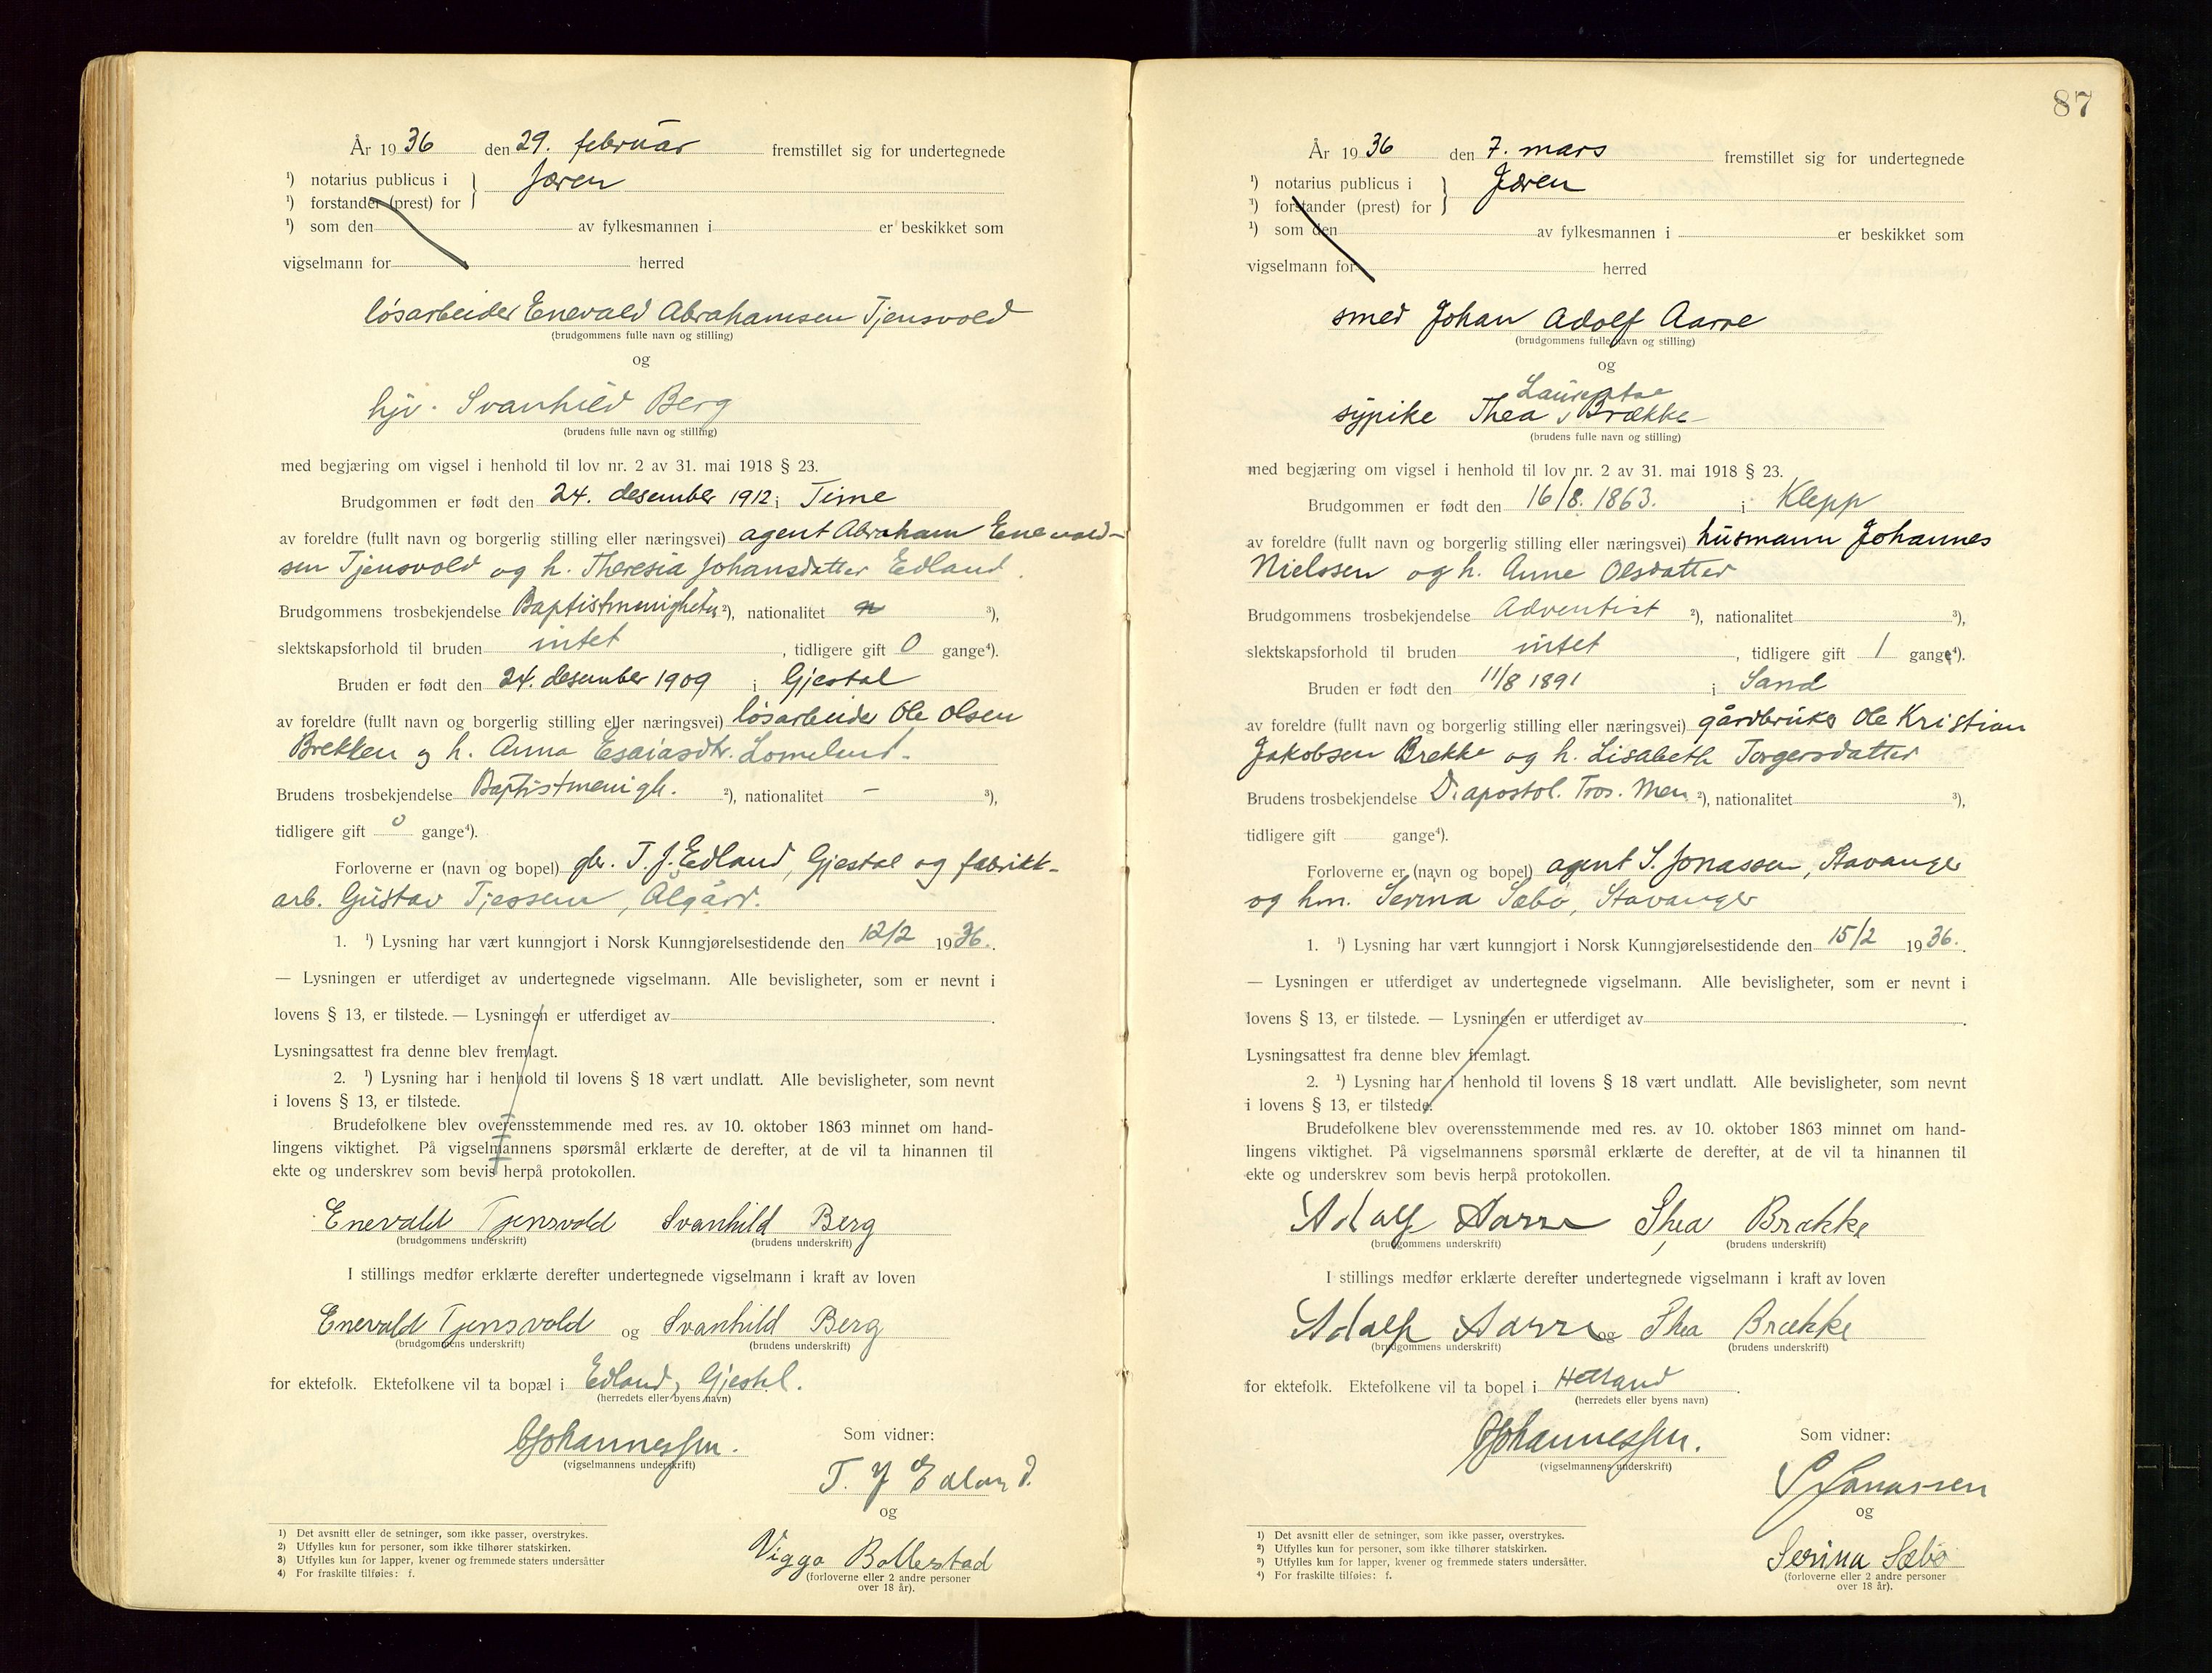 År 1936 den 29. februar fremstillet sig for undertegnede
¹) notarius publicus i } Jæren
¹) forstander (prest) for
¹) som den av fylkesmannen i er beskikket som
vigselmann for herred
løsarbeider Enevald Abrahamsen Tjensvold
(brudgommens fulle navn og stilling)
og
hjv. Svanhild Berg
(brudens fulle navn og stilling)
med begjæring om vigsel i henhold til lov nr. 2 av 31. mai 1918 § 23.
Brudgommen er født den 24. desember 1912 i Time
av foreldre (fullt navn og borgerlig stilling eller næringsvei) agent Abraham Enevald-
sen Tjensvold og h. Theresia Johansdatter Edland
Brudgommens trosbekjendelse Baptistmenigheten ²), nationalitet ³),
slektskapsforhold til bruden intet , tidligere gift 0 gange⁴).
Bruden er født den 24. desember 1909 i Gjestal
av foreldre (fullt navn og borgerlig stilling eller næringsvei) løsarbeider Ole Olsen
Brekken og h. Anna Esaiasdtr. Lomelund.
Brudens trosbekjendelse Baptistmenigh. ²), nationalitet – ³),
tidligere gift 0 gange⁴).
Forloverne er (navn og bopel) gbr. T. J. Edland, Gjestal og fabrikk-
arb. Gustav Tjessem, Algård.
1. ¹) Lysning har vært kunngjort i Norsk Kunngjørelsestidende den 12/2 1936.
— Lysningen er utferdiget av undertegnede vigselmann. Alle bevisligheter, som er nevnt i
lovens § 13, er tilstede. — Lysningen er utferdiget av .
Lysningsattest fra denne blev fremlagt.
2. ¹) Lysning har i henhold til lovens § 18 vært undlatt. Alle bevisligheter, som nevnt
i lovens § 13, er tilstede.
Brudefolkene blev overensstemmende med res. av 10. oktober 1863 minnet om hand-
lingens viktighet. På vigselmannens spørsmål erklærte de derefter, at de vil ta hinannen til
ekte og underskrev som bevis herpå protokollen.
Enevald Tjensvold Svanhild Berg
(brudgommens underskrift) (brudens underskrift)
I stillings medfør erklærte derefter undertegnede vigselmann i kraft av loven
Enevald Tjensvold og Svanhild Berg
(brudgommens underskrift) (brudens underskrift)
for ektefolk. Ektefolkene vil ta bopæl i Edland, Gjestal.
(herredets eller byens navn)
Johannessen.
(vigselmannens underskrift)
Som vidner:
T. J Edland.
og
Viggo Bollestad
(forloverne eller 2 andre personer
over 18 år).
1) Det avsnitt eller de setninger, som ikke passer, overstrykes.
2) Utfylles kun for personer, som ikke tilhører statskirken.
3) Utfylles kun for lapper, kvener og fremmede staters undersåtter
4) For fraskilte tilføies: f.
87
År 1936 den 7. mars fremstillet sig for undertegnede
¹) notarius publicus i } Jæren
¹) forstander (prest) for
¹) som den av fylkesmannen i er beskikket som
vigselmann for herred
smed Johan Adolf Aarre
(brudgommens fulle navn og stilling)
og
Laurentse
sypike Thea Brække
(brudens fulle navn og stilling)
med begjæring om vigsel i henhold til lov nr. 2 av 31. mai 1918 § 23.
Brudgommen er født den 16/8. 1863. i Klepp
av foreldre (fullt navn og borgerlig stilling eller næringsvei) husmann Johannes
Nielssen og h. Anne Olsdatter
Brudgommens trosbekjendelse Adventist ²), nationalitet ³),
slektskapsforhold til bruden intet , tidligere gift 1 gange⁴).
Bruden er født den 11/8 1891 i Sand
av foreldre (fullt navn og borgerlig stilling eller næringsvei) gårdbruker Ole Kristian
Jakobsen Brekke og h. Lisabeth Torgersdatter
Brudens trosbekjendelse D. apostol. Tros. Men ²), nationalitet ³),
tidligere gift gange⁴).
Forloverne er (navn og bopel) agent S. Jonassen, Stavanger
og hm. Serina Sæbø, Stavanger
1. ¹) Lysning har vært kunngjort i Norsk Kunngjørelsestidende den 15/2 1936.
— Lysningen er utferdiget av undertegnede vigselmann. Alle bevisligheter, som er nevnt i
lovens § 13, er tilstede. — Lysningen er utferdiget av .
Lysningsattest fra denne blev fremlagt.
2. ¹) Lysning har i henhold til lovens § 18 vært undlatt. Alle bevisligheter, som nevnt
i lovens § 13, er tilstede.
Brudefolkene blev overensstemmende med res. av 10. oktober 1863 minnet om hand-
lingens viktighet. På vigselmannens spørsmål erklærte de derefter, at de vil ta hinannen til
ekte og underskrev som bevis herpå protokollen.
Adolf Aarre Thea Brække
(brudgommens underskrift) (brudens underskrift)
I stillings medfør erklærte derefter undertegnede vigselmann i kraft av loven
Adolf Aarre og Thea Brække
(brudgommens underskrift) (brudens underskrift)
for ektefolk. Ektefolkene vil ta bopel i Hetland .
(herredets eller byens navn)
Johannessen.
(vigselmannens underskrift)
Som vidner:
S Jonassen
og
Serina Sæbø
(forloverne eller 2 andre personer
over 18 år).
¹) Det avsnitt eller de setninger, som ikke passer, overstrykes.
²) Utfylles kun for personer, som ikke tilhører statskirken.
³) Utfylles kun for lapper, kvener og fremmede staters undersåtter.
⁴) For fraskilte tilføies: f.